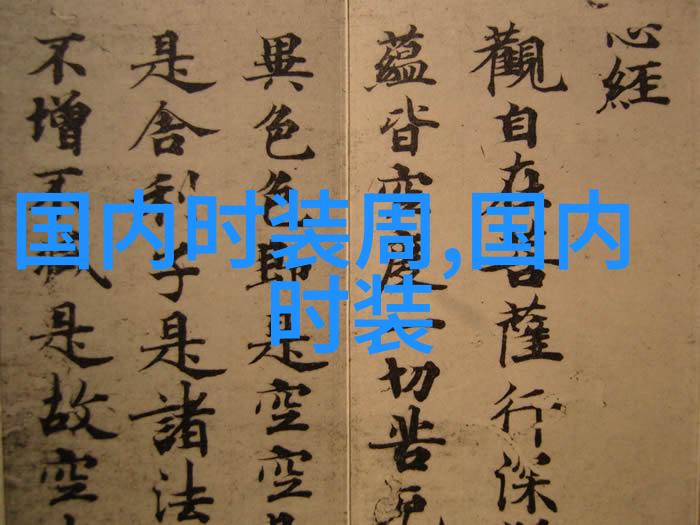 心經
觀自在菩薩行深
蘊皆空度一切苦厄
異色色是空空是
是舍利子是諸法
不增不減是故空
国内时装周,国内
时装